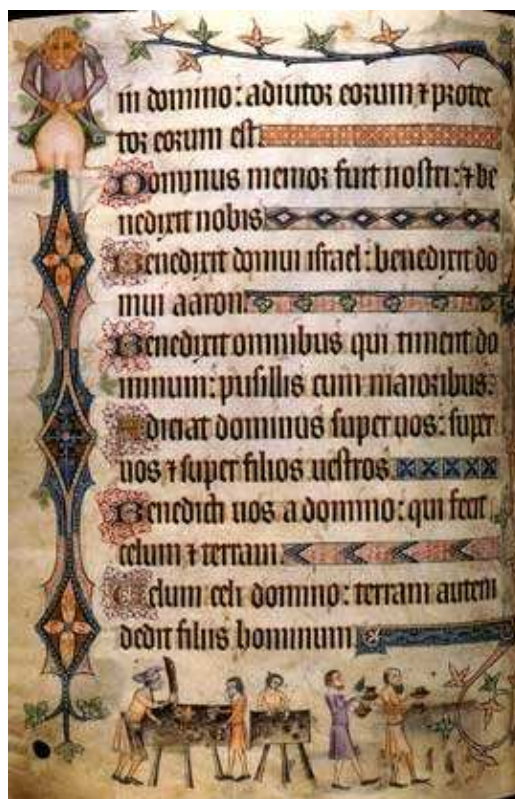 in domino: adiutor eorum ⁊ protec
tor eorum est.
Dominus memor fuit nostri: ⁊ be
nedixit nobis.
Benedixit domui israel: benedixit do
mui aaron.
Benedixit omnibus qui timent do
minum: pusillis cum maioribus.
Adiciat dominus super uos: super
uos ⁊ super filios uestros.
Benedicti uos a domino: qui fecit
celum ⁊ terram.
Celum celi domino: terram autem
dedit filiis hominum.